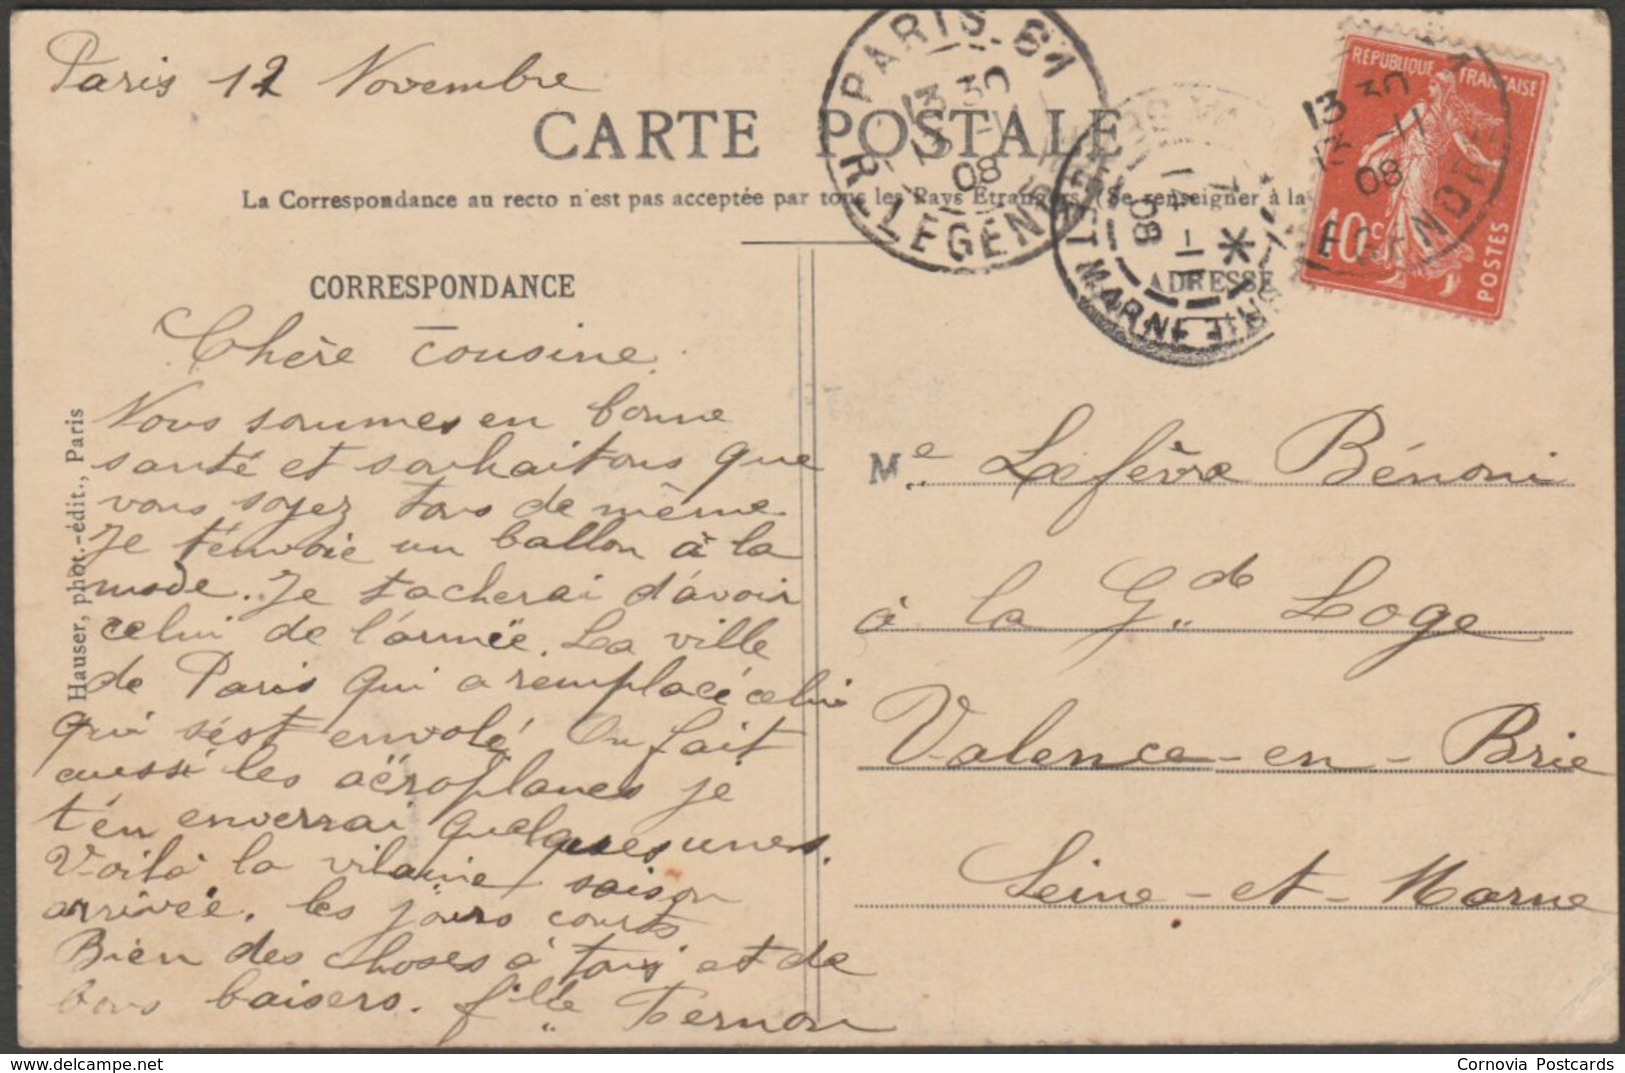 Paris 12 Novembre
CARTE POSTALE
La Correspondance au recto n'est pas acceptée par tous les Pays Etrangers (Se renseigner à la
CORRESPONDANCE
ADRESSE
Chère Cousine
Nous sommes en bonne
santé et souhaitons que
vous soyez tous de même
Je t'envoie un ballon à la
mode. Je tacherai d'avoir
celui de l'armée. La ville
de Paris qui a remplacé celui
qui s'est envolé On fait
aussi les aéroplanes je
t'en enverrai quelques unes.
Voilà la vilaine saison
arrivée. les jours courts
Bien des choses à tous et de
bons baisers. fille Fernon
Me Lefèvre Bénoni
à la Gde Loge
Valence-en-Brie
Seine-et-Marne
Hauser, phot.-édit., Paris
PARIS. 61
13 30
13 -11
08
R. LEGENDRE
ET MARNE
08
REPUBLIQUE FRANÇAISE
10c
POSTES
13 30
13 -11
08
Cornovia Postcards